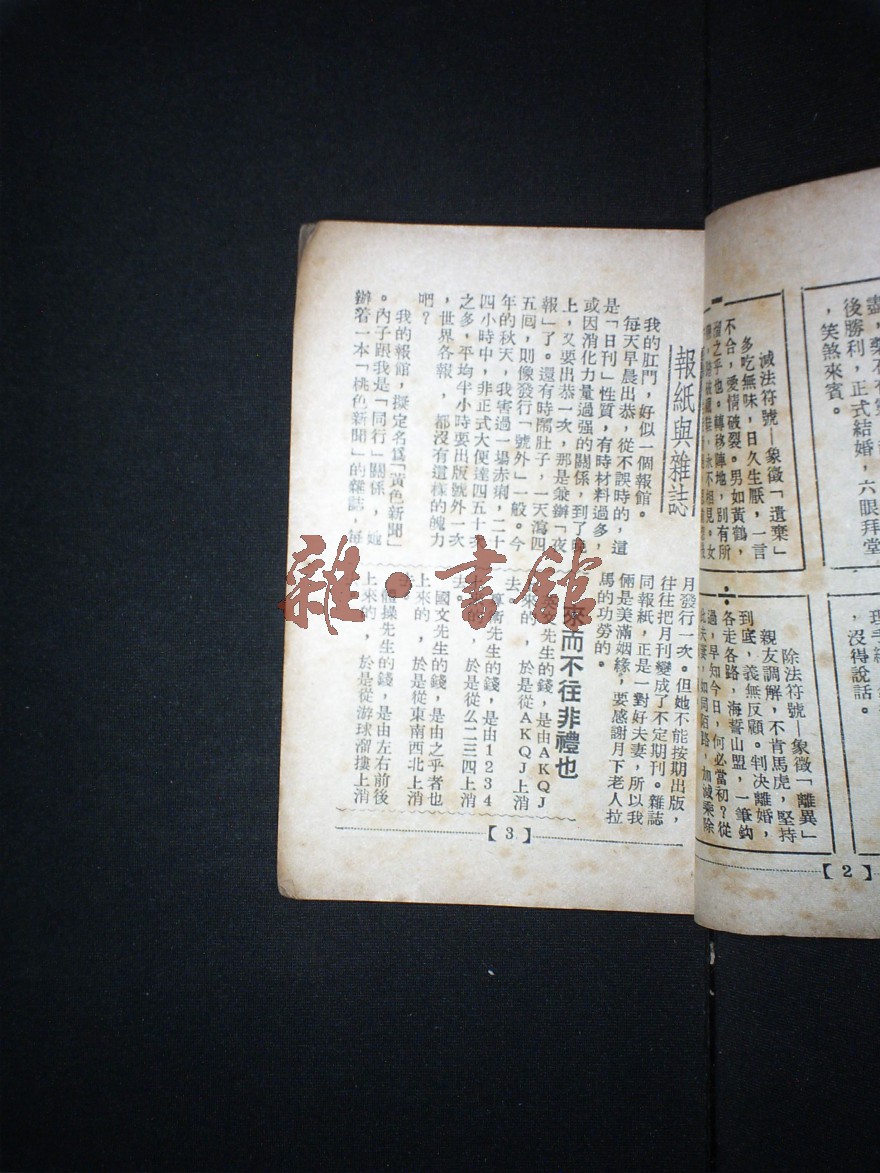 盡，
後勝利，正式結婚，六眼拜堂
，笑煞來賓。
理手續
，沒得說話。
減法符號—象徵「遺棄」
多吃無味，日久生厭，一言
不合，愛情破裂。男如黃鶴，
溜之乎也。轉移陣地，別有所
永不相見。女
÷
除法符號—象徵「離異」
親友調解，不肯馬虎，堅持
到底，義無反顧。判决離婚，
各走各路，海誓山盟，一筆鈎
過，早知今日，何必當初？從
此夫妻，如同陌路，加減乘除
【2】
報紙與雜誌
我的肛門，好似一個報館。
每天早晨出恭，從不誤時的，這
是「日刊」性質，有時材料過多，
或因消化力量過强的關係，到了晚
上，又要出恭一次，那是兼辦「夜
報」了。還有時鬧肚子，一天瀉四
五囘，則像發行「號外」一般。今
年的秋天，我害過一場赤痢，二十
四小時中，非正式大便達四五十次
之多，平均半小時要出版號外一次
，世界各報，都沒有這樣的魄力
吧？
我的報館，擬定名爲「黃色新聞」
。內子跟我是「同行」關係，她
辦着一本「桃色新聞」的雜誌，每
月發行一次。但她不能按期出版，
往往把月刊變成了不定期刊。雜誌
同報紙，正是一對好夫妻，所以我
倆是美滿姻緣，要感謝月下老人拉
馬的功勞的。
來而不往非禮也
先生的錢，是由AKQJ
來的，於是從AKQJ上消
去。
算術先生的錢，是由1234
的，於是從么二三四上消
去。
國文先生的錢，是由之乎者也
上來的，於是從東南西北上消
去。
體操先生的錢，是由左右前後
上來的，於是從游球溜摟上消
【3】
雜·書館